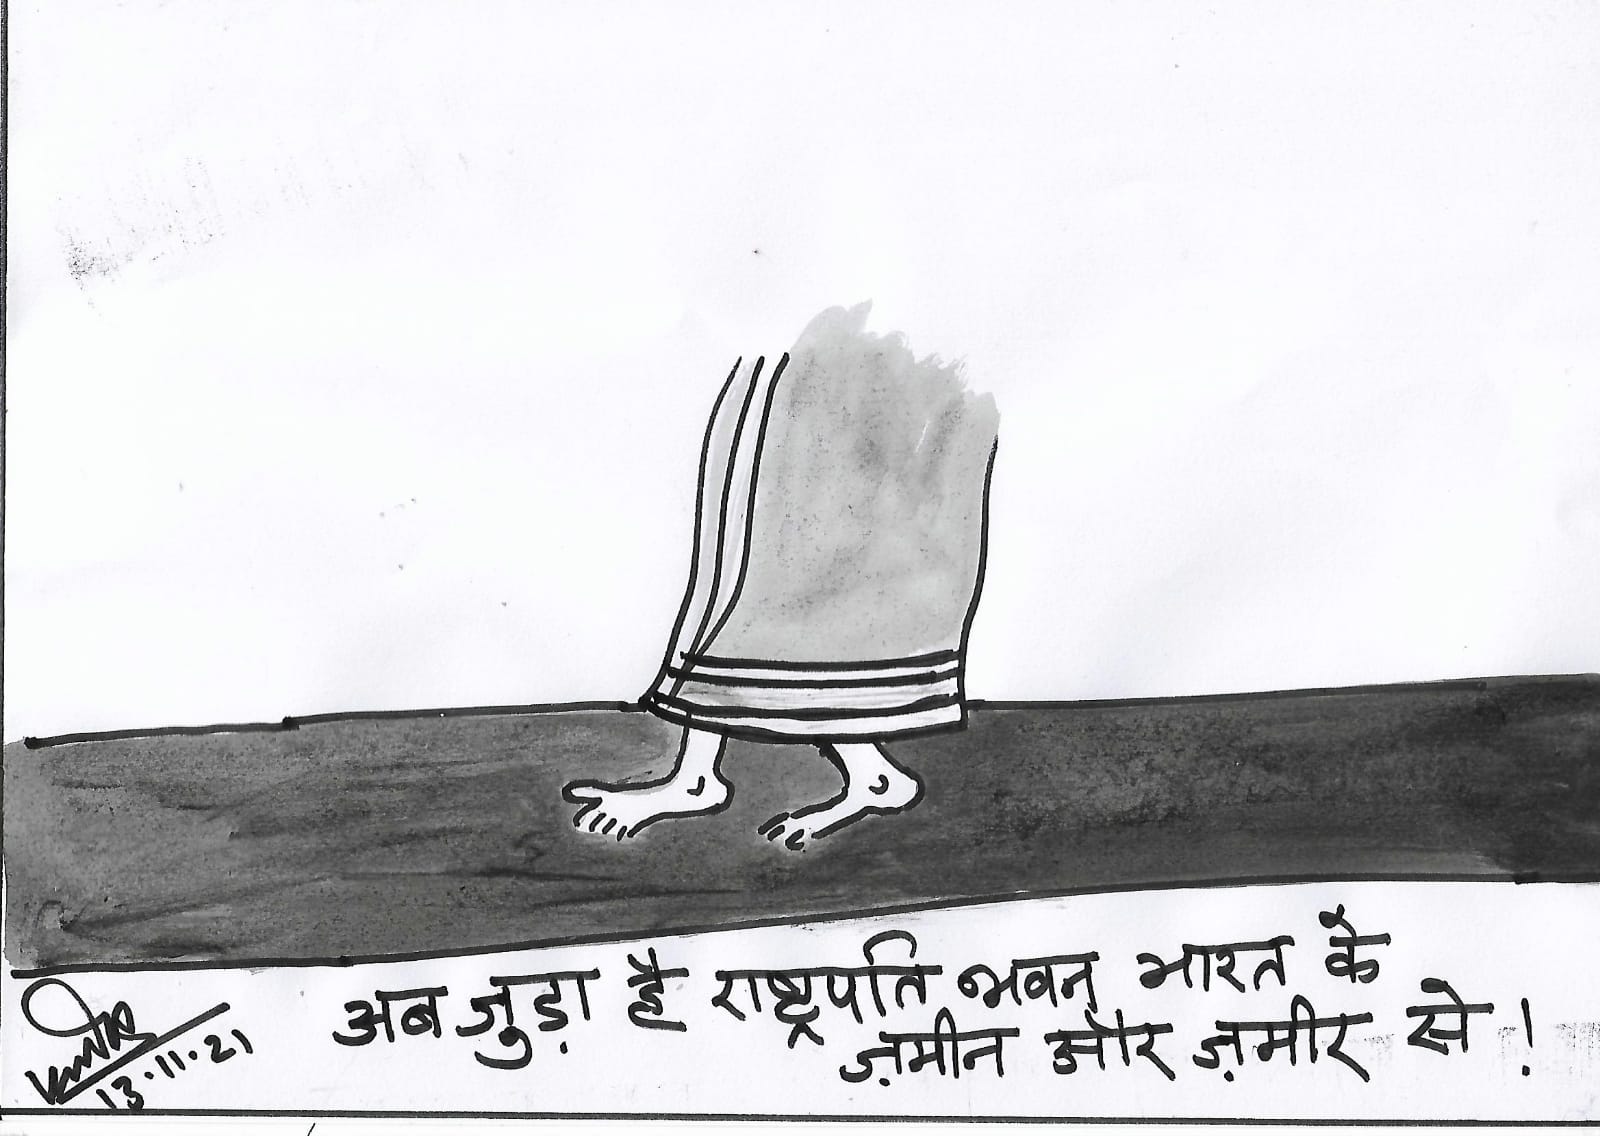 अब जुड़ा है राष्ट्रपति भवन भारत के
ज़मीन और ज़मीर से !
13.11.21